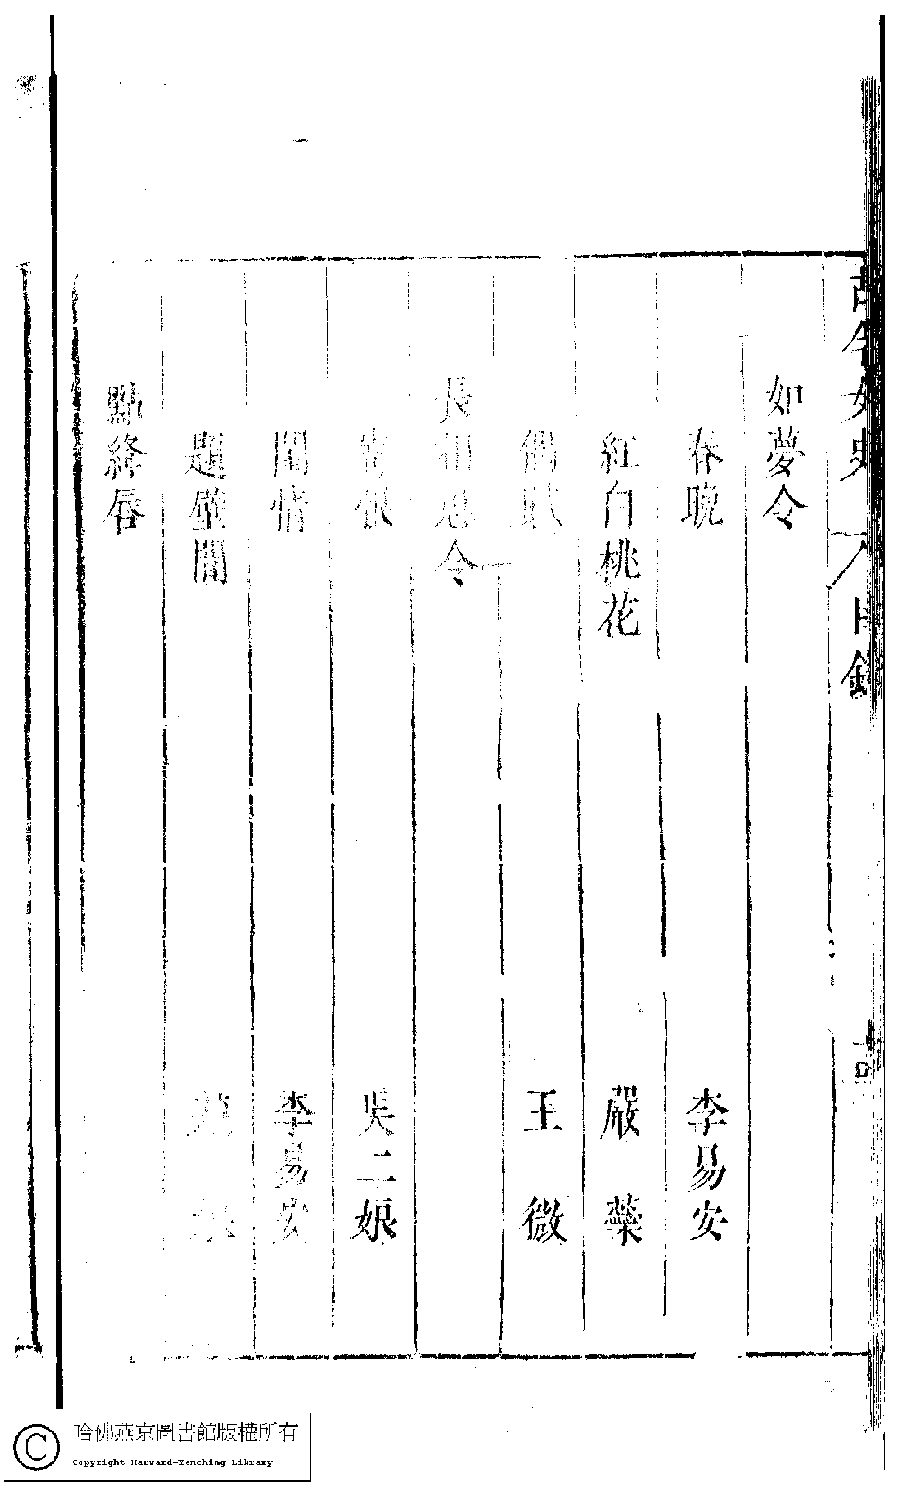 古今女史 目錄
如夢令
春晚 李易安
紅白桃花 嚴藥
偶 王微
長相思令
恨 吳二娘
閨情 李易安
題壁間
點絳唇
哈佛燕京圖書館版權所有
Copyright Harvard-Yenching Library